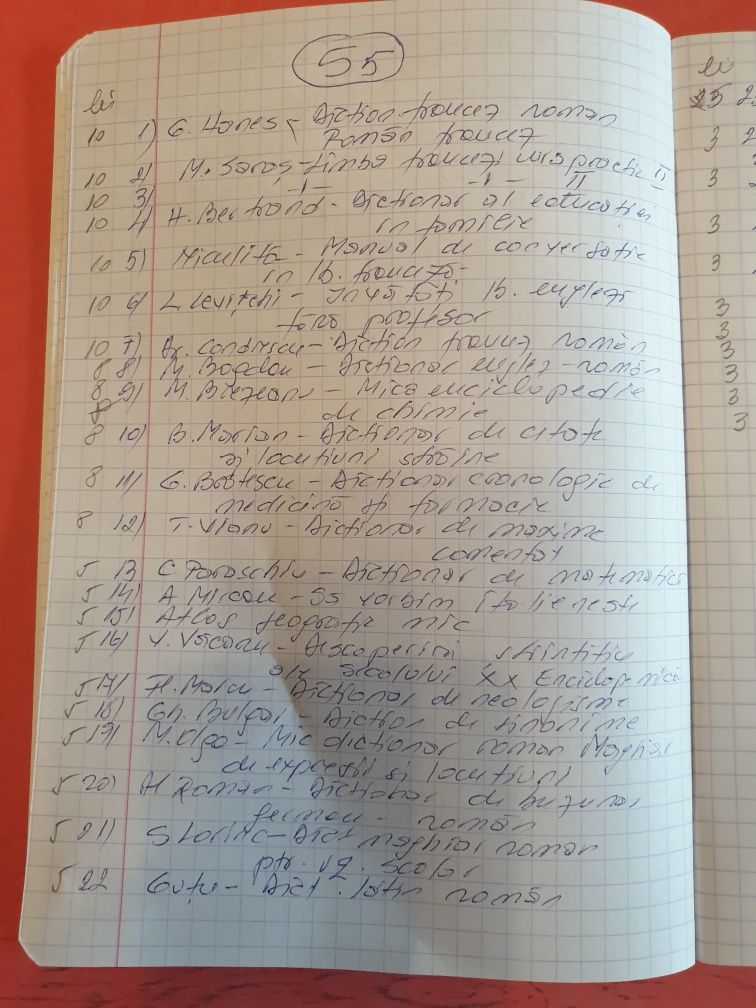 55
lei
10 1) G. Hanes - Diction francez roman
Român francez
10 2) M. Saraș - Limba franceză curs practic II
10 3) -"- -"- II
10 4) H. Bertrand - Dictionar al educatiei
in familie
10 5) Miculita - Manual de conversatie
in lb. franceză
10 6) L. Levitchi - Invătăti lb. engleză
fără profesor
10 7) Gr. Condrescu - Diction francez român
8 8) M. Bogdan - Dictionar englez - român
8 9) M. - Mica enciclopedie
8
de chimie
8 10) B. Marian - Dictionar de citate
si locutiuni străine
8 11) G. Brătescu - Dictionar cronologic de
medicină și farmacie
8 12) T. Vianu - Dictionar de maxime
comentat
5 13 C. Paraschiv - Dictionar de matematici
5 14) A. Mircau - Să vorbim italieneste
5 15) Atlas geografic mic
5 16) V. - Descoperiri stiintifice
ale secolului XX Enciclop mică
5 17) F. Marcu - Dictionar de neologisme
5 18) Gh. Bulgar - Diction de sinonime
5 19) M. Olga - Mic dictionar roman Maghiar
de expresii si locutiuni
5 20) A Roman - Dictionar de buzunar
german - român
5 21) - Dict maghiar roman
ptr. uz. scolar
5 22 Gutu - Dict. latin român
lei
25 2
3 2
3
3
3
3
3
3
3
3
3